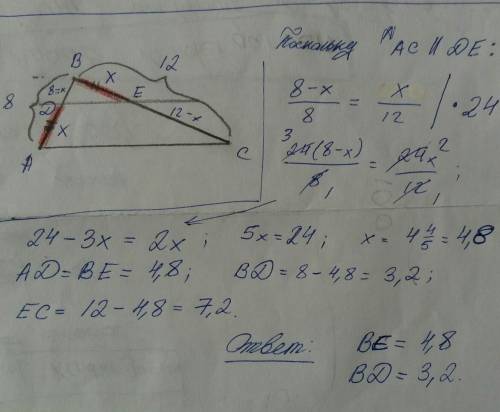 B
8
8-x
x
12
D
E
x
12-x
A
C
Поскольку AC || DE:
8-x / 8 = x / 12 | · 24
3
24(8-x) / 8 1 = 24x 2 / 12 1 ;
24 - 3x = 2x ; 5x = 24 ; x = 4 4/5 = 4,8
AD = BE = 4,8 ; BD = 8 - 4,8 = 3,2 ;
EC = 12 - 4,8 = 7,2.
Ответ: BE = 4,8
BD = 3,2.